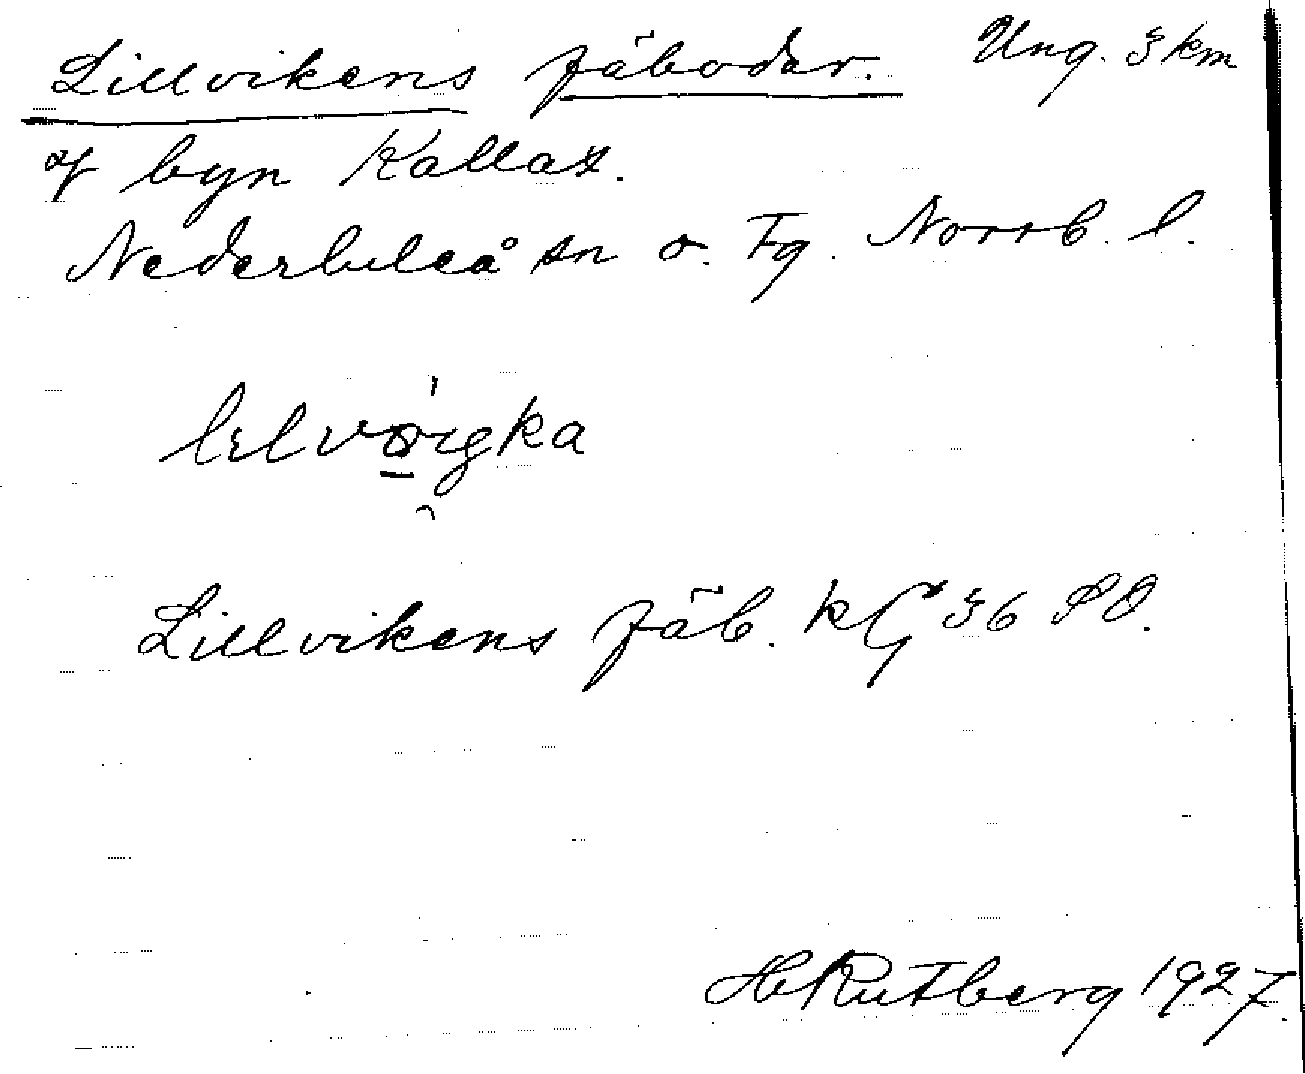 Lillvikens fäbodar. Ung. 3 km
af byn Kallax.
Nederluleå sn o. Tg. Norrb. l.
Lillvikens fäb. kG 36 SO.
H Rutberg 1927.